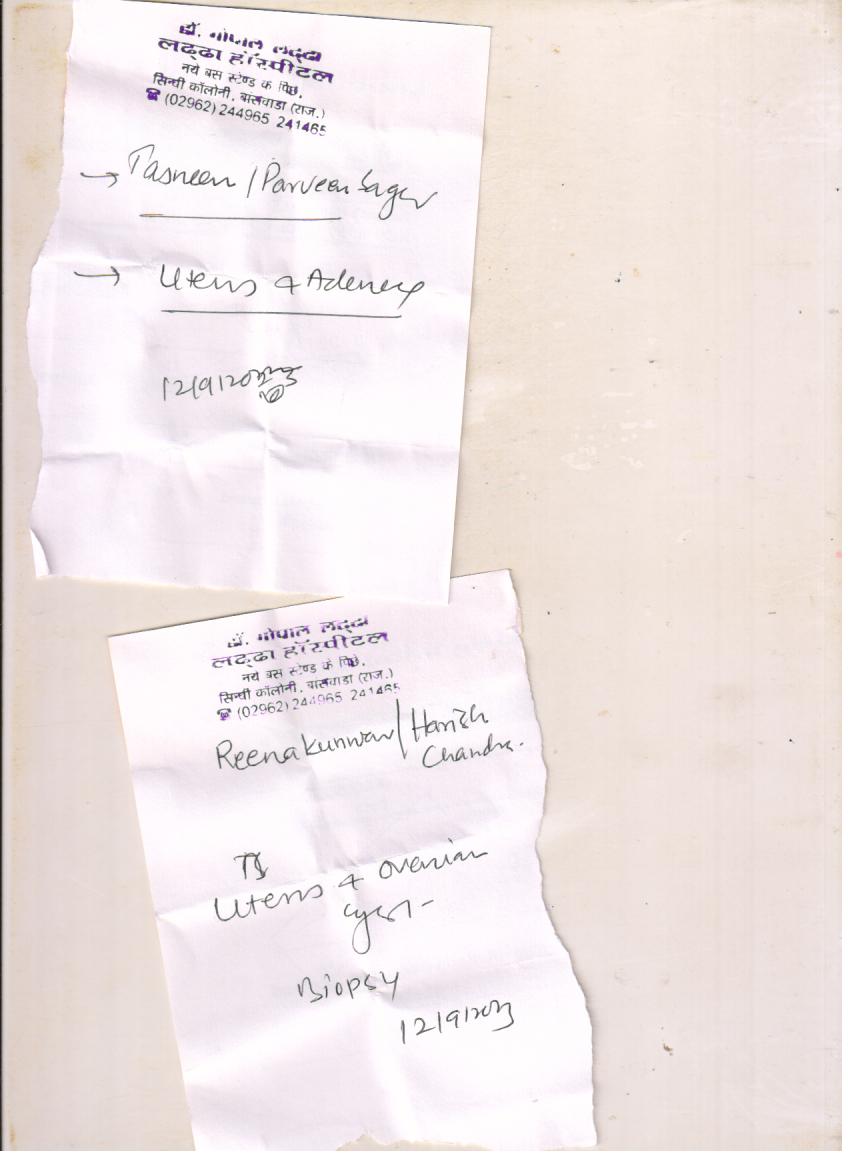 डॉ. गोपाल लद्दा
लद्ढा हॉस्पीटल
नये बस स्टेण्ड के पिछे,
सिन्धी कॉलोनी, बांसवाडा (राज.)
☎ (02962) 244965 241465
→ Tasneem / Parveen Sager
→ Uterus & Adenexa
12/9/2023
डॉ. गोपाल लद्दा
लद्ढा हॉस्पीटल
नये बस स्टेण्ड के पिछे,
सिन्धी कॉलोनी, बांसवाडा (राज.)
☎ (02962) 244965 241465
Reena Kunwar / Harish
Chandra.
Uterus & Ovarian
cyst -
Biopsy
12/9/2023